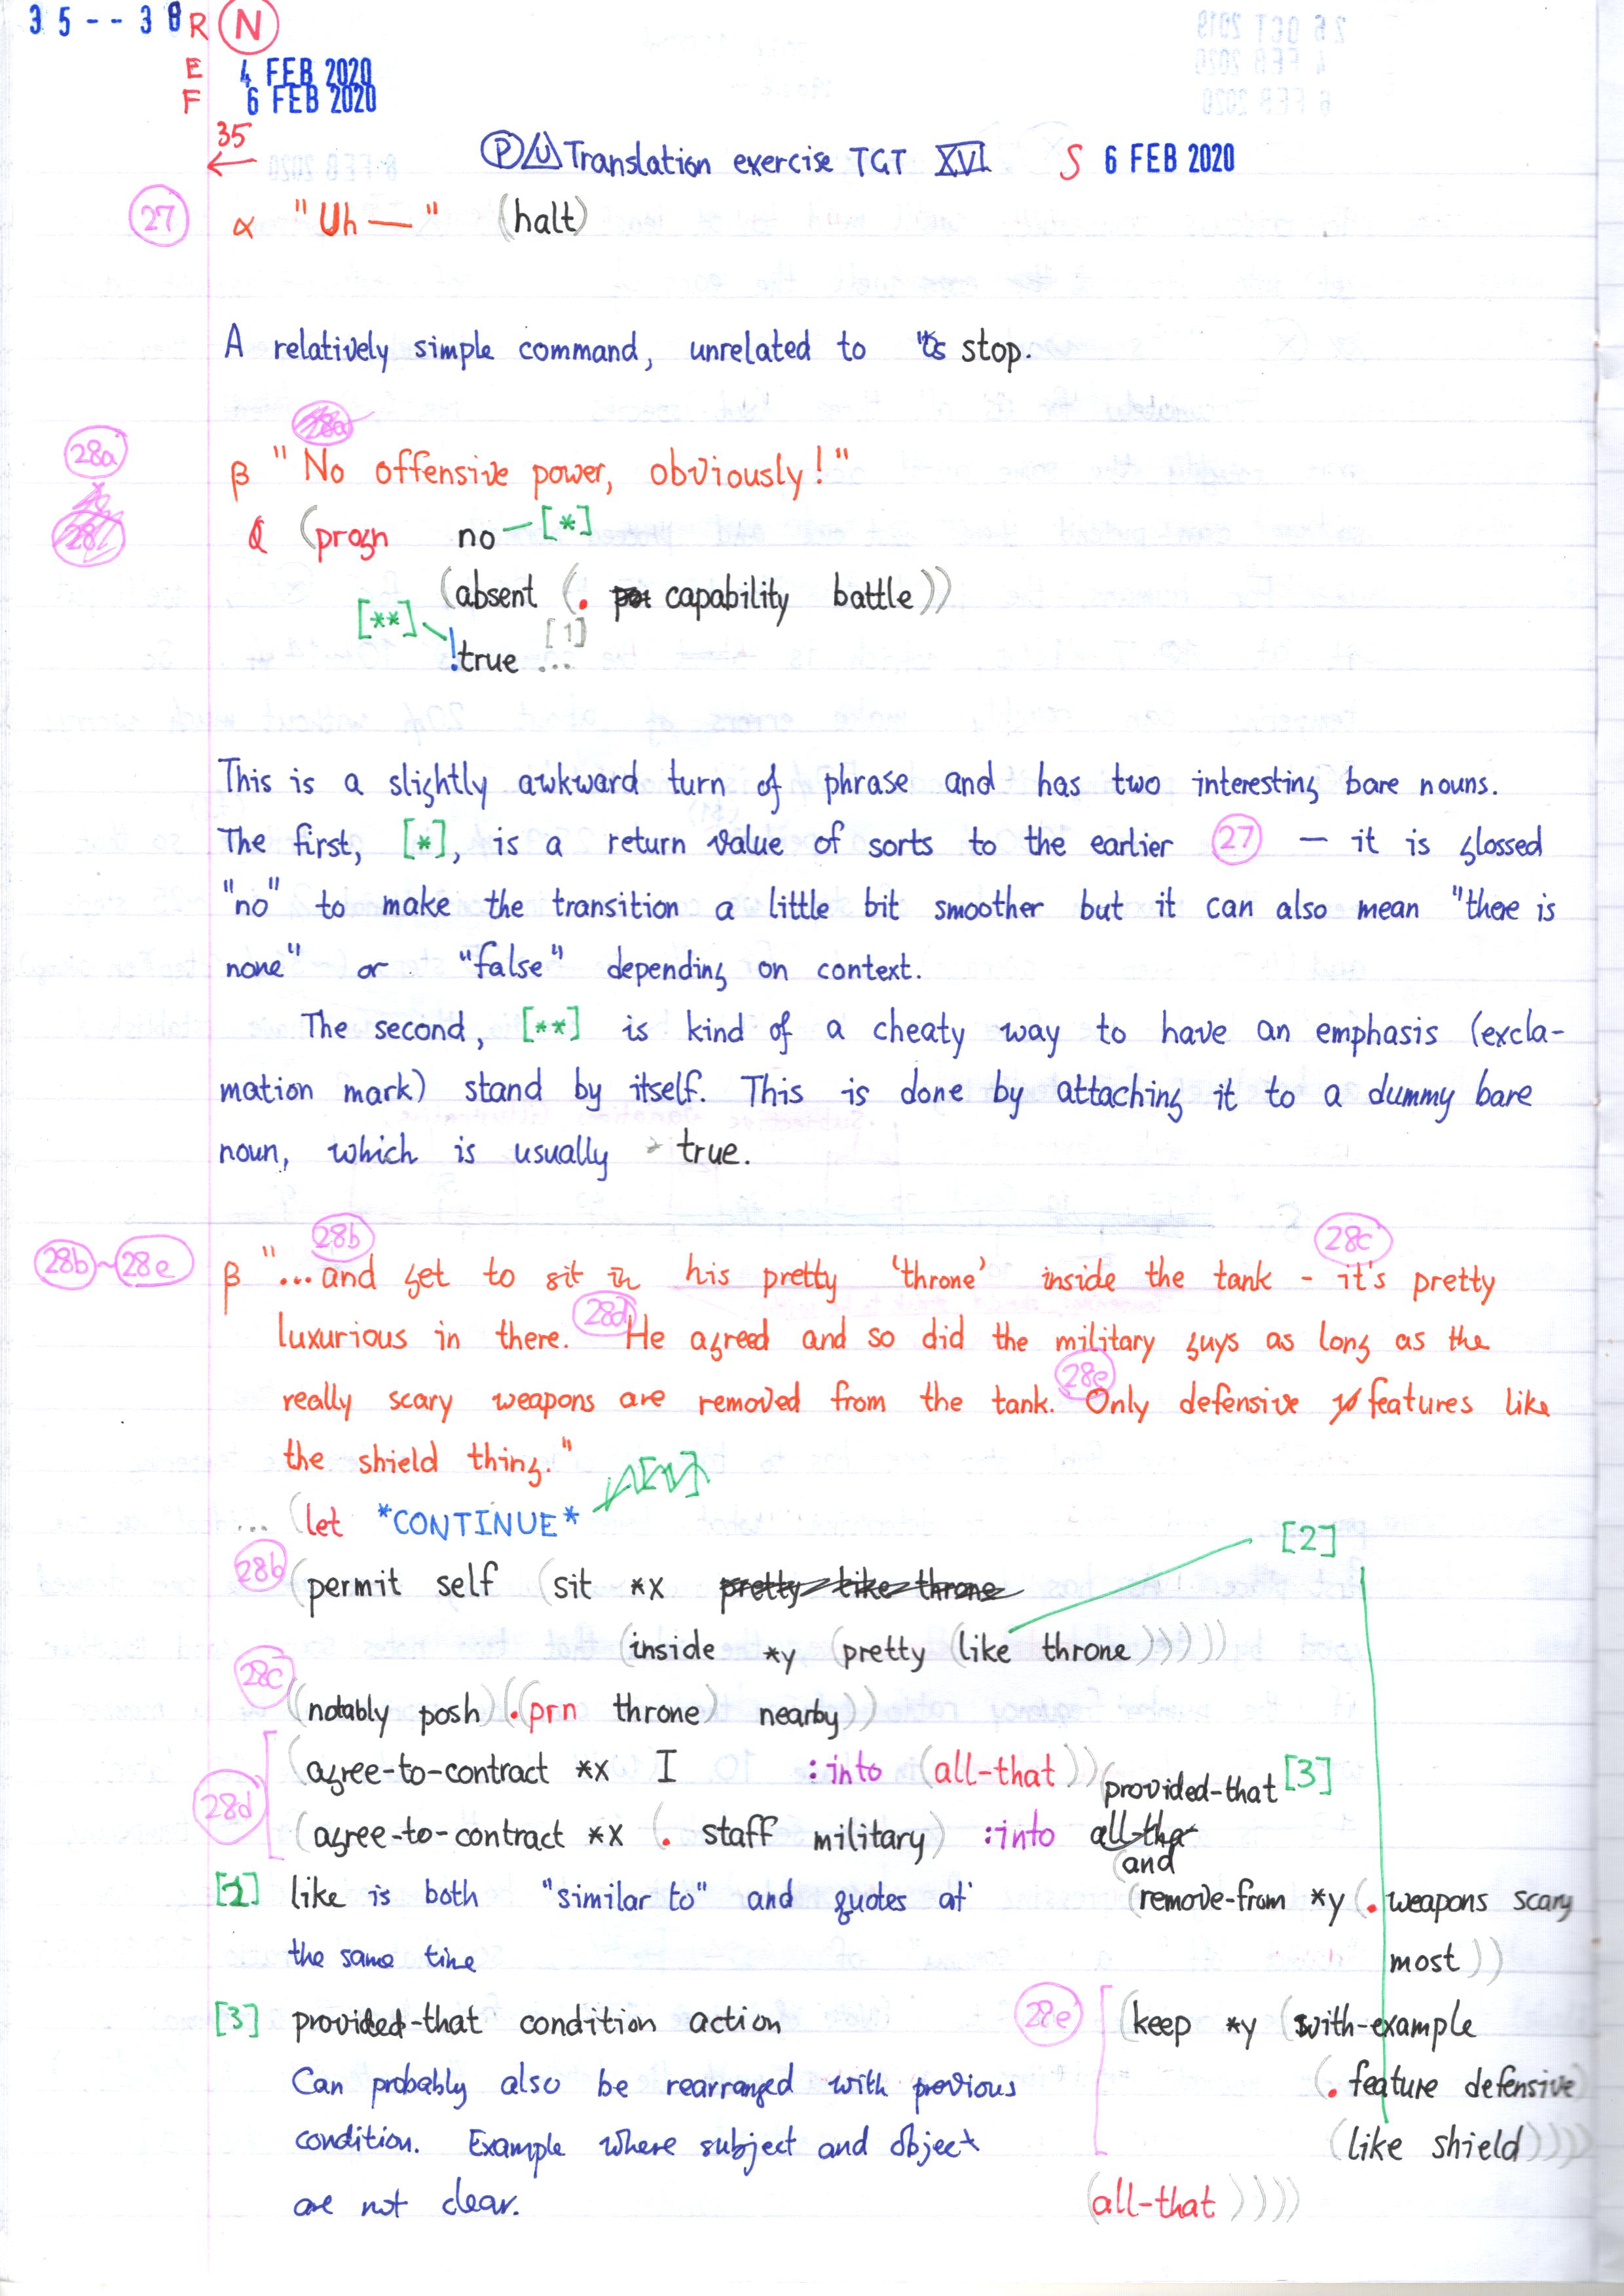 35--38 R N
E 4 FEB 2020
F 6 FEB 2020
35
←
Ⓟ U Translation exercise TGT XVI S 6 FEB 2020
27 α "Uh —" (halt)
A relatively simple command, unrelated to stop.
28a β "No offensive power, obviously!"
(progn no — [*]
(absent (. capability battle))
[**] !true ... [1]
This is a slightly awkward turn of phrase and has two interesting bare nouns.
The first, [*], is a return value of sorts to the earlier 27 — it is glossed
"no" to make the transition a little bit smoother but it can also mean "there is
none" or "false" depending on context.
The second, [**] is kind of a cheaty way to have an emphasis (excla-
mation mark) stand by itself. This is done by attaching it to a dummy bare
noun, which is usually true.
28b~28e β "...and get to sit in his pretty 'throne' inside the tank - it's pretty
28b 28c
luxurious in there. 28d He agreed and so did the military guys as long as the
really scary weapons are removed from the tank. 28e Only defensive features like
the shield thing."
... (let *CONTINUE*
[2]
28b (permit self (sit **x
(inside *y (pretty (like throne)))))
28c (notably posh) (.prn throne) nearby))
28d (agree-to-contract **x I :into (all-that)) (provided-that [3]
(agree-to-contract **x (. staff military) :into
(and
(remove-from *y (. weapons scary
most))
28e (keep *y (with-example
(. feature defensive)
(like shield))))
(all-that))))
[2] like is both "similar to" and quotes at
the same time
[3] provided-that condition action
Can probably also be rearranged with previous
condition. Example where subject and object
are not clear.